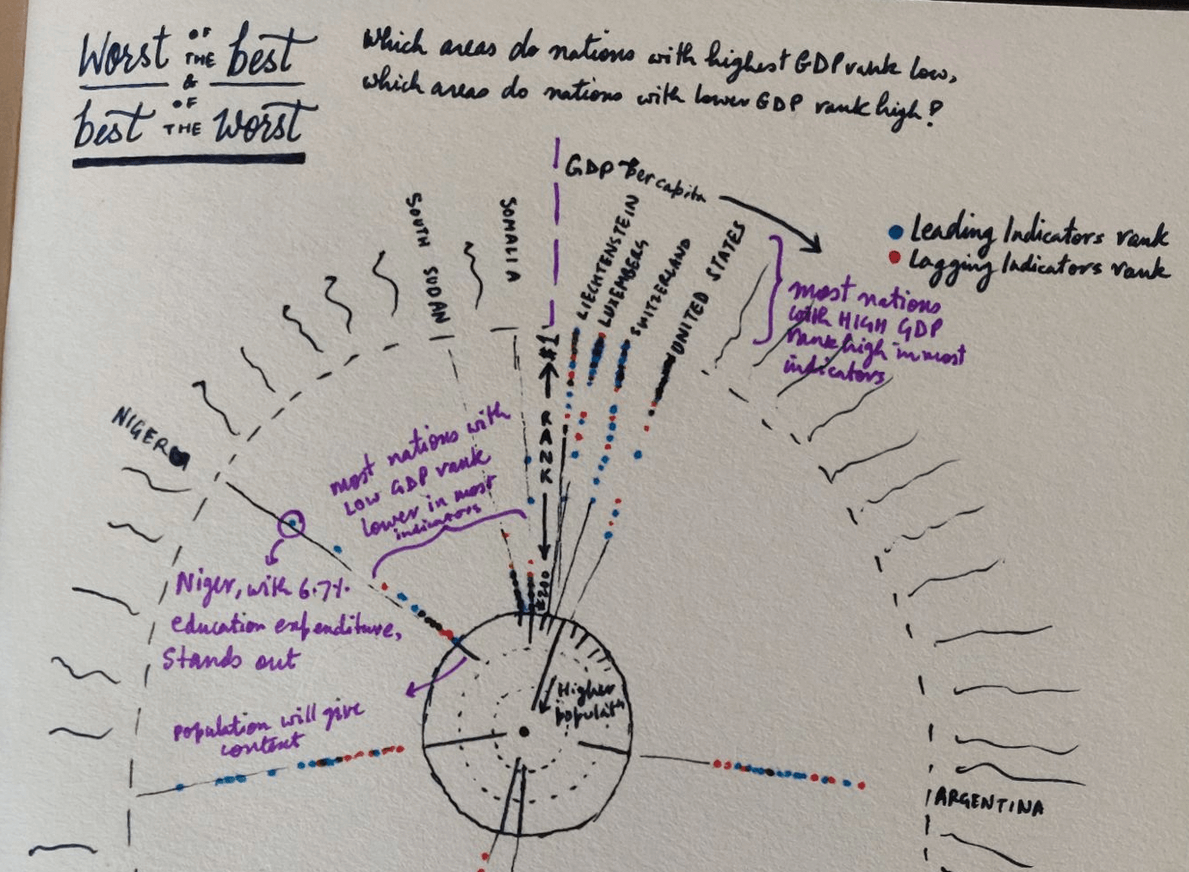 Worst OF THE best
&
best OF THE worst
Which areas do nations with highest GDP rank low,
which areas do nations with lower GDP rank high?
GDP Per capita
Leading Indicators rank
Lagging Indicators rank
SOUTH SUDAN
SOMALIA
LIECHTENSTEIN
LUXEMBERG
SWITZERLAND
UNITED STATES
most nations
with HIGH GDP
rank high in most
indicators
#1
RANK
NIGER
most nations with
LOW GDP rank
lower in most
indicators
Niger, with 6.7%
education expenditure,
Stands out
population will give
context
Higher
ARGENTINA